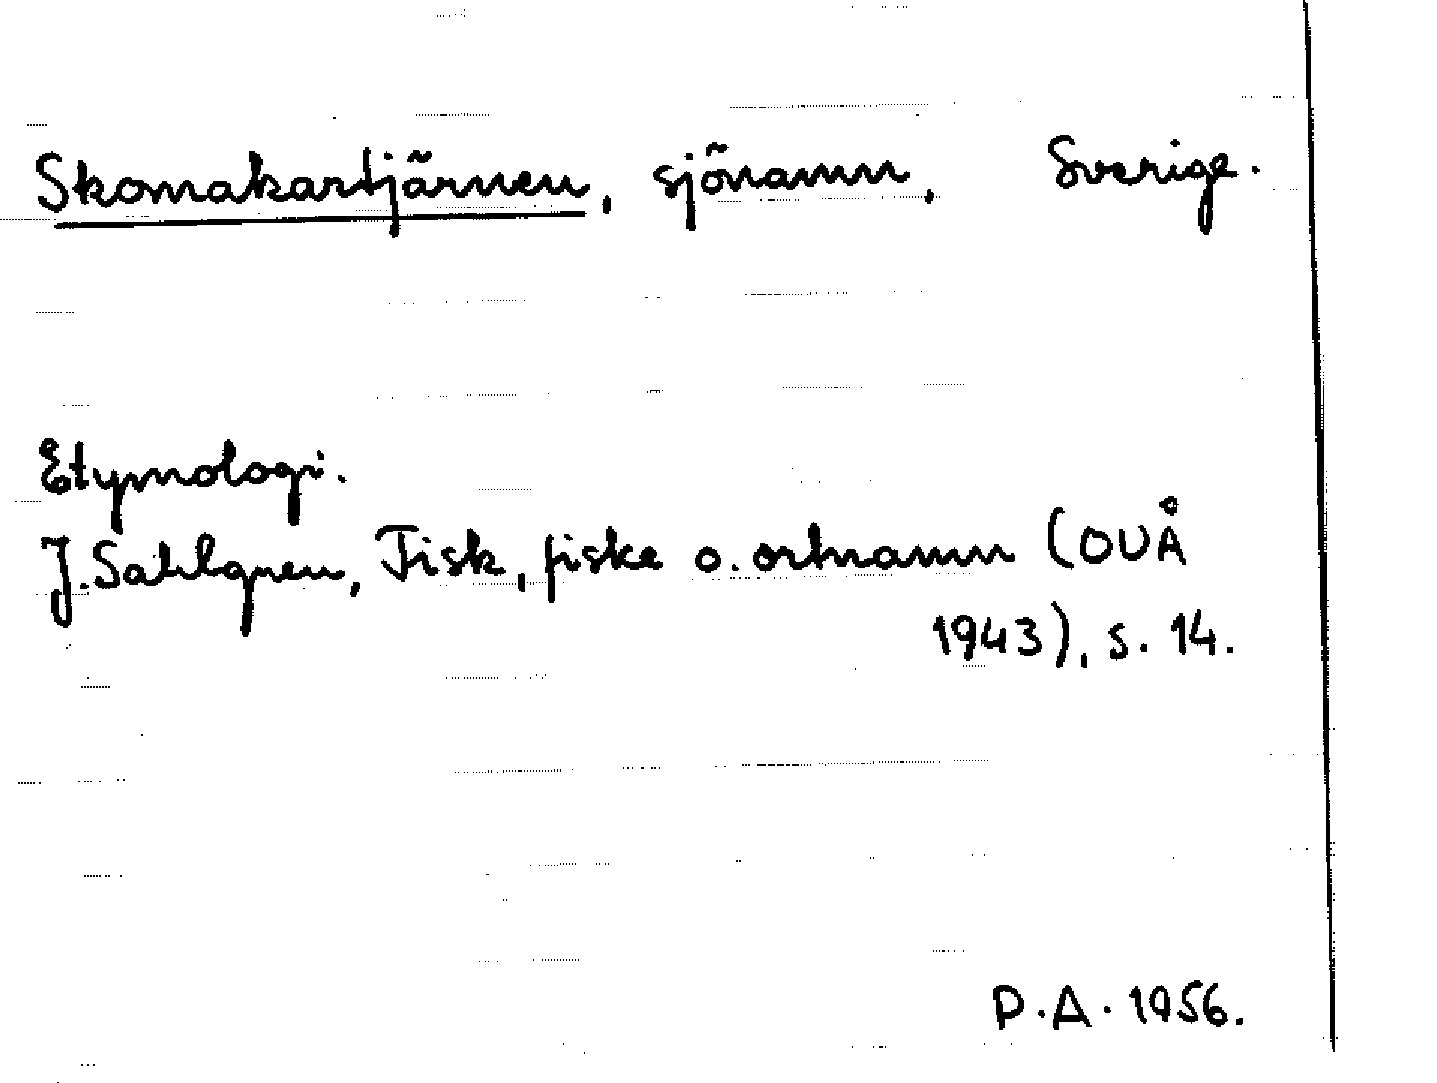 Skomakartjärnen, sjönamn, Sverige.
Etymologi.
J. Sahlgren, Fisk, fiske o. ortnamn (OUÅ
1943), s. 14.
P.A. 1956.